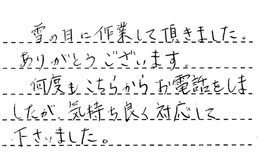 雪の日に作業して頂きました。
ありがとうございます。
何度もこちらからお電話をしま
したが、気持ち良く対応して
下さいました。